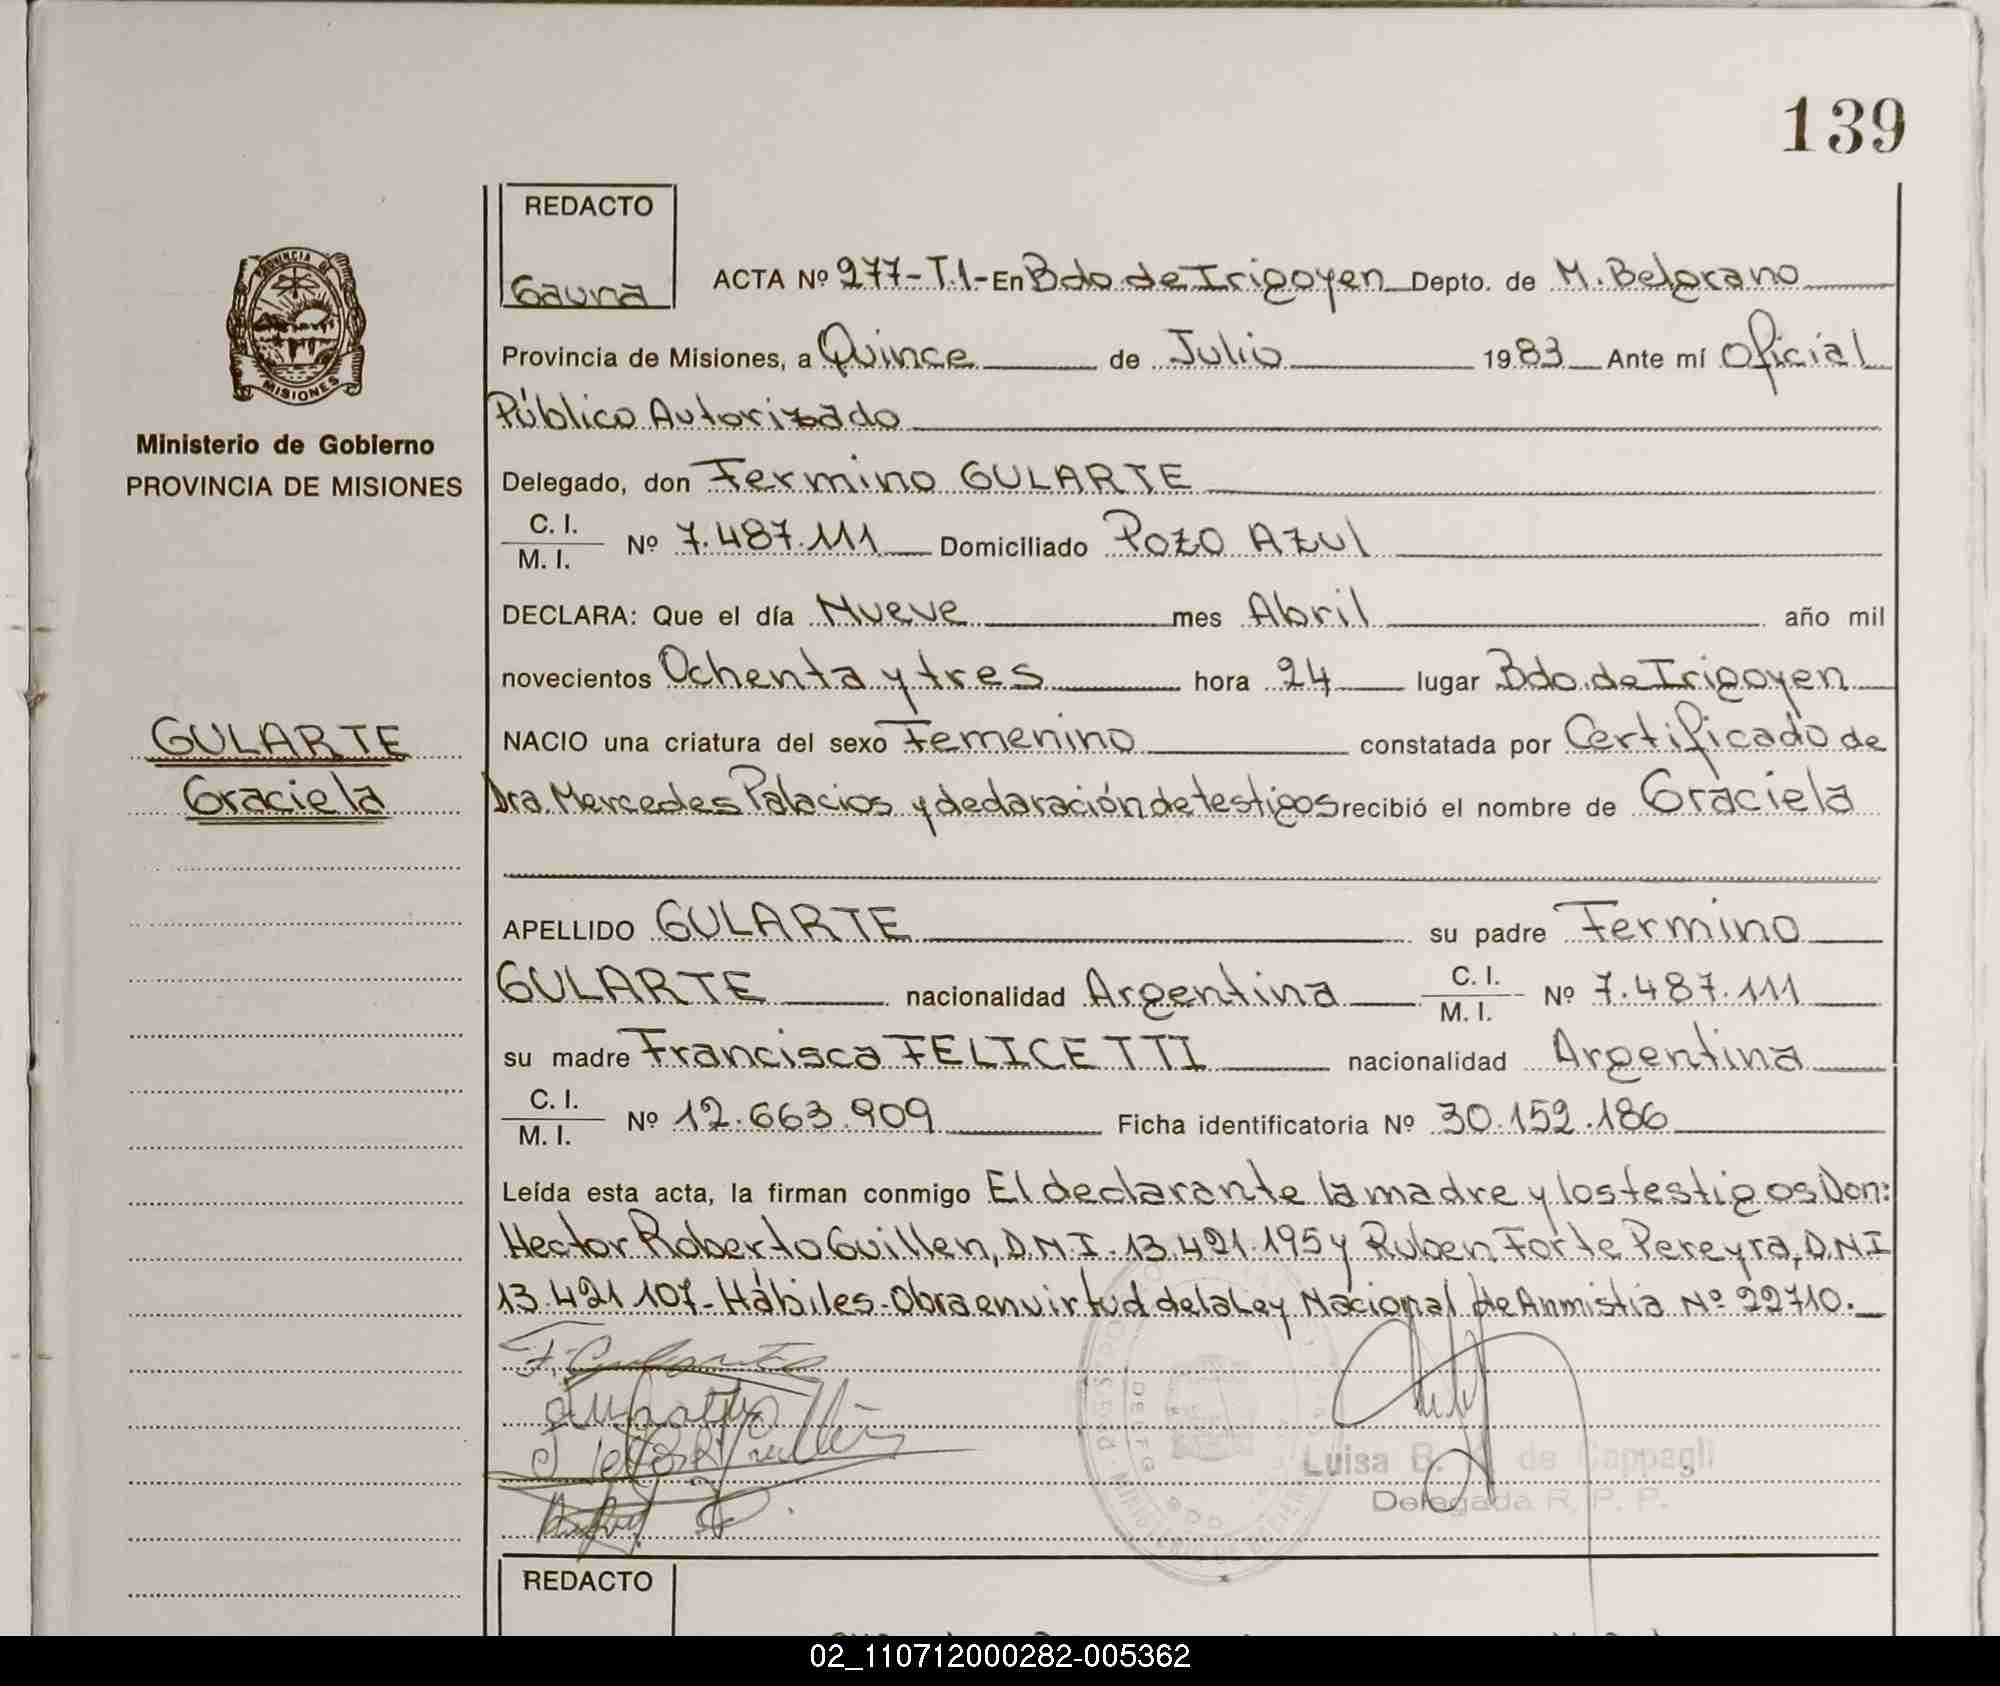 139
REDACTO
Gauna
PROVINCIA DE
MISIONES
Ministerio de Gobierno
PROVINCIA DE MISIONES
GULARTE
Graciela
ACTA Nº 277-T.1- En Bdo de Irigoyen Depto. de M. Belgrano
Provincia de Misiones, a Quince de Julio 1983 Ante mí Oficial
Público Autorizado
Delegado, don Fermino GULARTE
C. I.
M. I. Nº 7.487.111 Domiciliado Pozo Azul
DECLARA: Que el día Nueve mes Abril año mil
novecientos Ochenta y tres hora 24 lugar Bdo. de Irigoyen
NACIO una criatura del sexo Femenino constatada por Certificado de
Dra. Mercedes Palacios y declaración de testigos recibió el nombre de Graciela
APELLIDO GULARTE su padre Fermino
GULARTE nacionalidad Argentina C. I. M. I. Nº 7.487.111
su madre Francisca FELICETTI nacionalidad Argentina
C. I.
M. I. Nº 12.663.909 Ficha identificatoria Nº 30.152.186
Leída esta acta, la firman conmigo El declarante la madre y los testigos Don:
Hector Roberto Guillen, D.N.I. 13.421.195 y Ruben Forte Pereyra, D.N.I
13.421.107- Hábiles- Obra en virtud de la Ley Nacional de Anmistía Nº 22710.
F. Gularte
Luisa B. de Cappagli
Delegada R. P. P.
REDACTO
02_110712000282-005362